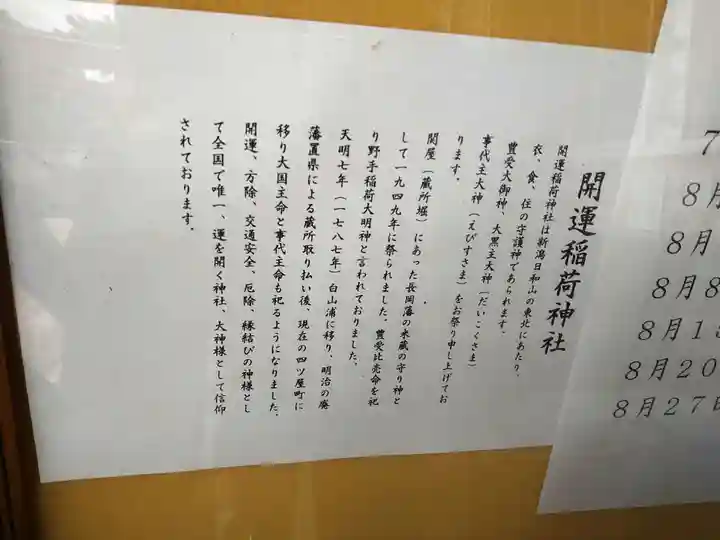 開運稲荷神社
開運稲荷神社は新潟日和山の東北にあたり、
衣、食、住の守護神であられます。
豊受大御神、大黒主大神(だいこくさま)
事代主大神(えびすさま)をお祭り申し上げてお
ります。
関屋(蔵所堀)にあった長岡藩の米蔵の守り神と
して一九四九年に祭られました。豊受比売命を祀
り野手稲荷大明神と言われておりました。
天明七年(一七八七年)白山浦に移り、明治の廃
藩置県による蔵所取り払い後、現在の四ツ屋町に
移り大国主命と事代主命も祀るようになりました。
開運、方除、交通安全、厄除、縁結びの神様とし
て全国で唯一、運を開く神社、大神様として信仰
されております。
7
8月
8月
8月8
8月15
8月20
8月27日